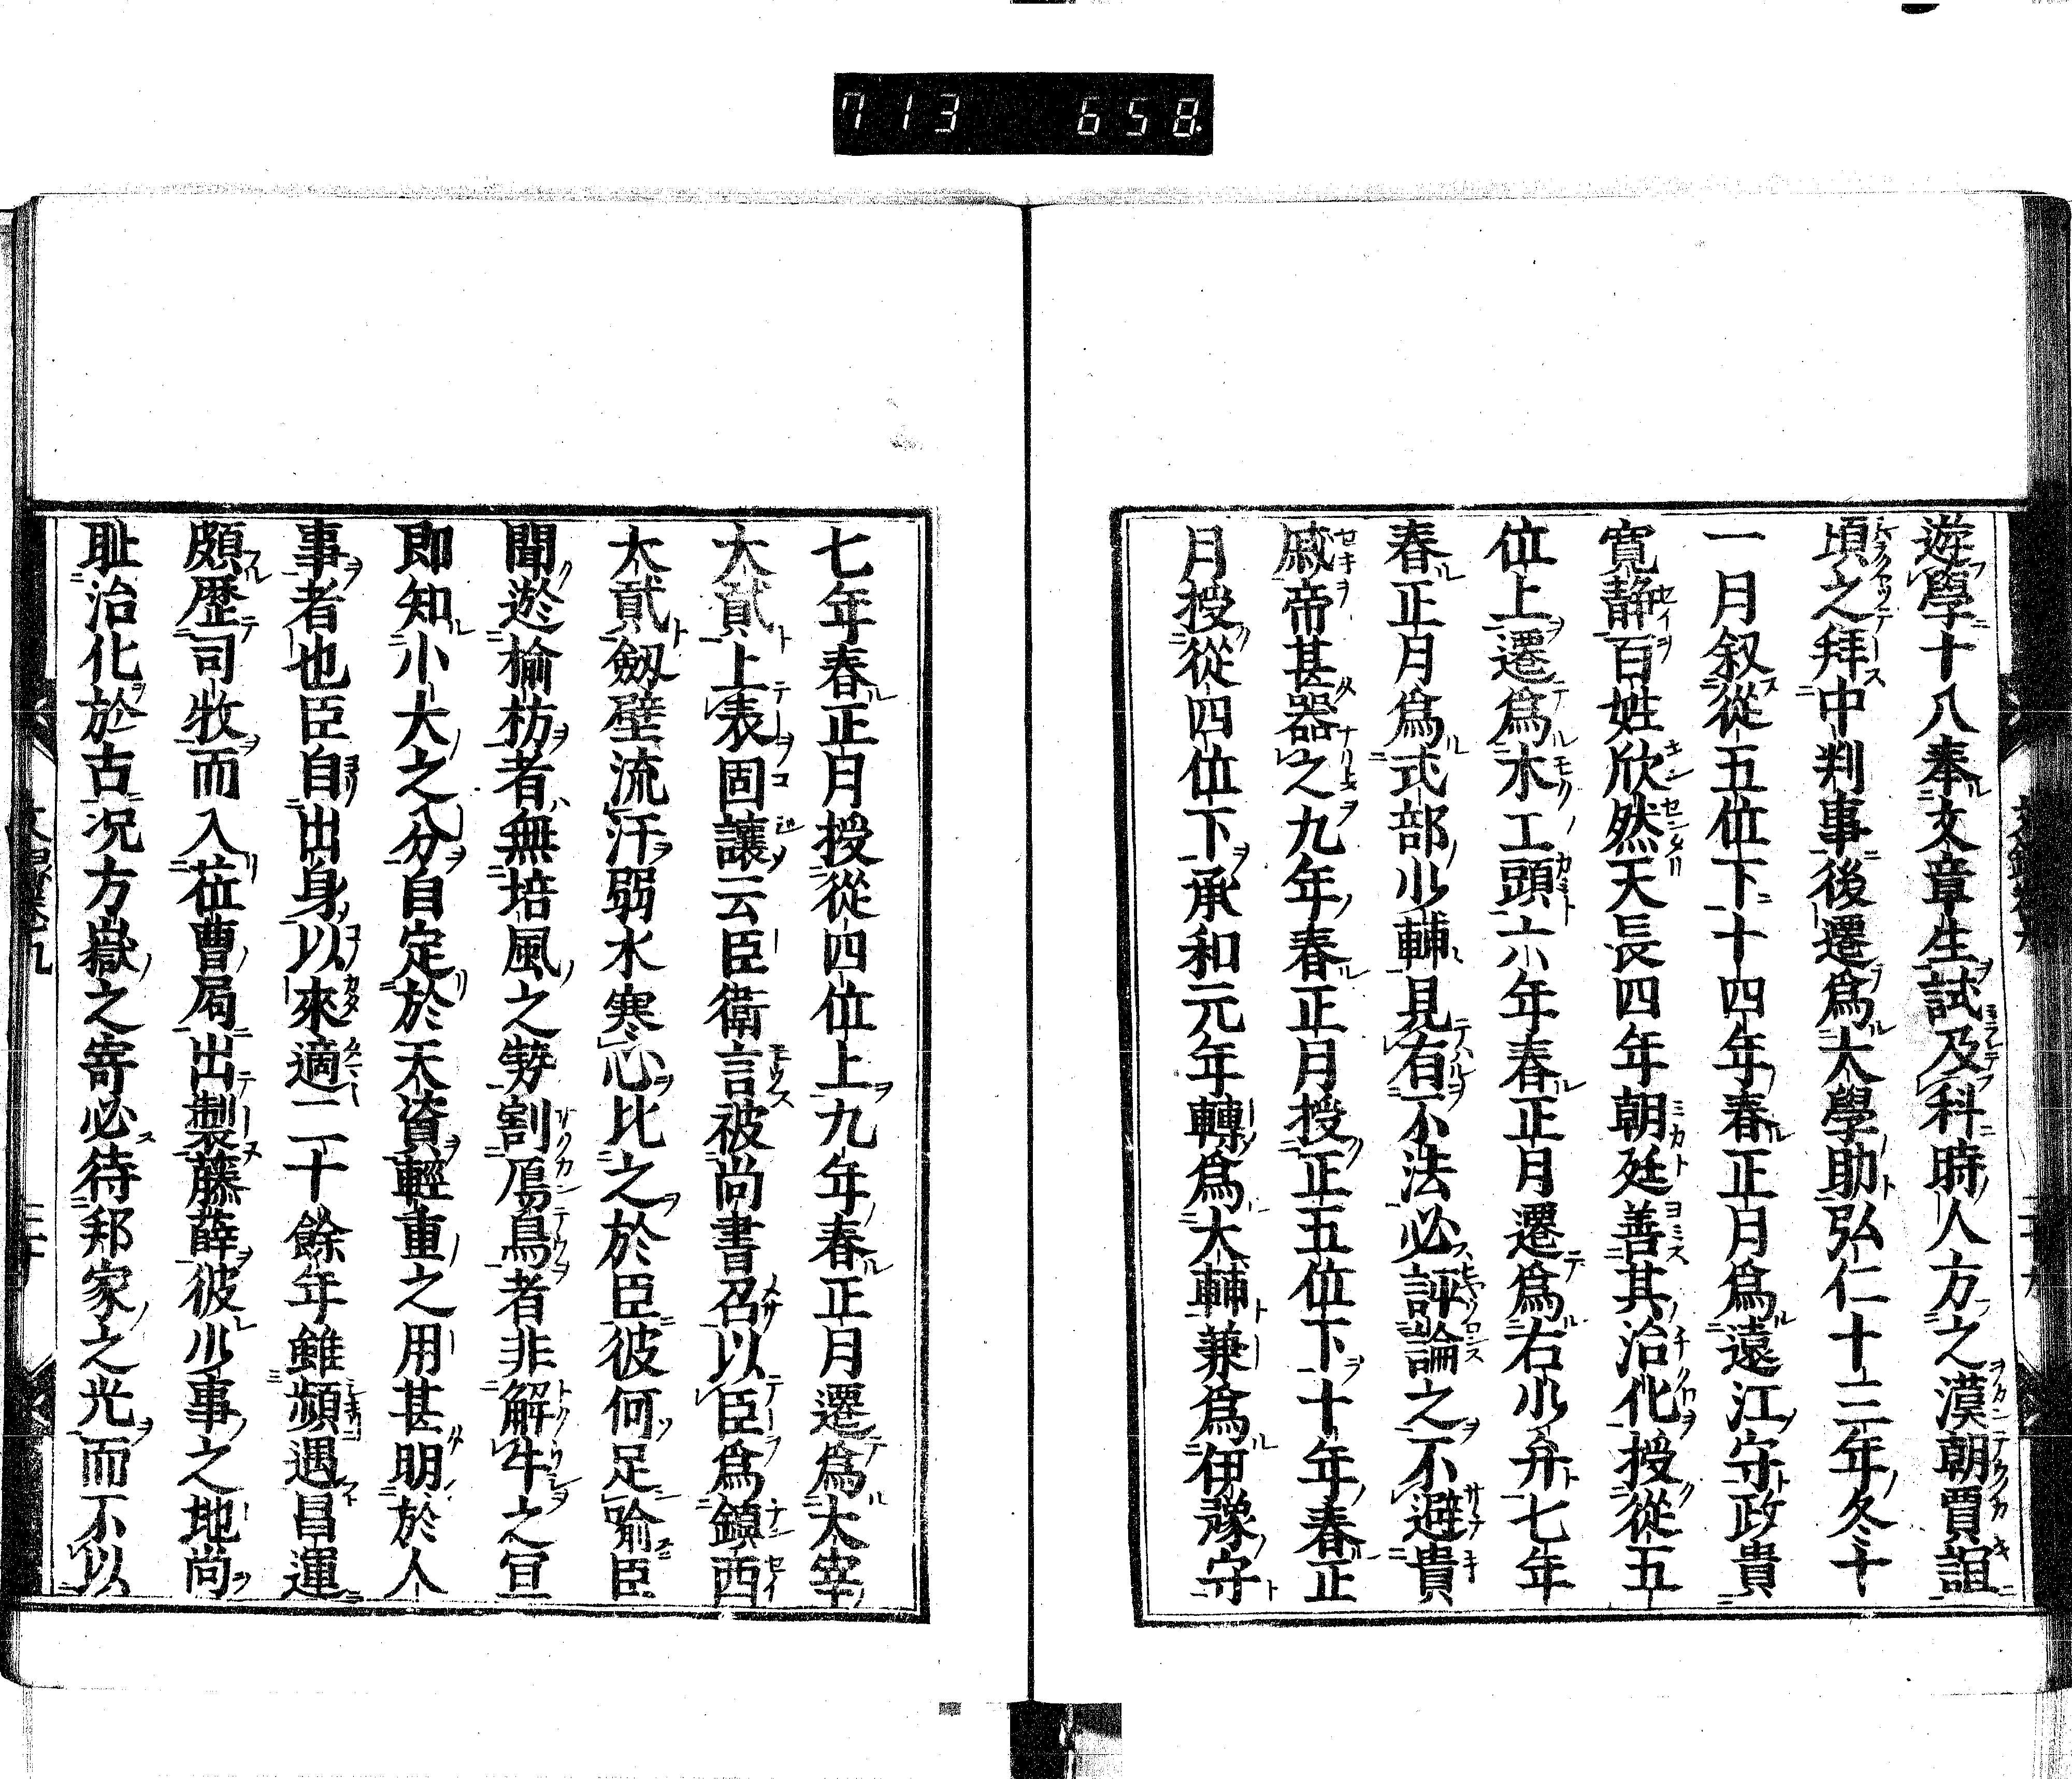 713 658
遊學十八奉文章生試及科時人方之漢朝賈誼
頃之拜中判事後遷爲大學助弘仁十三年冬十
一月叙從五位下十四年春正月爲遠江守政貴
寛静百姓欣然天長四年朝廷善其治化授從五
位上遷爲木工頭六年春正月遷爲右少弁七年
春正月爲式部少輔見有不法必評論之不避貴
戚帝甚器之九年春正月授正五位下十年春正
月授從四位下承和元年轉爲大輔兼爲伊豫守
七年春正月授從四位上九年春正月遷爲太宰
大貳上表固讓云臣衛言被尚書召以臣爲鎮西
大貳劔壁流汗弱水寒心比之於臣彼何足喩臣
聞遊楡枋者無培風之勢割鴈鳥者非解牛之宜
即知小大之分自定於天資輕重之用甚明於人
事者也臣自出身以來適二十餘年雖頻遇昌運
頗歴司牧而入莅曹局出製藤薛彼少事之地尚
耻治化於古况方嶽之寄必待邦家之光而不以